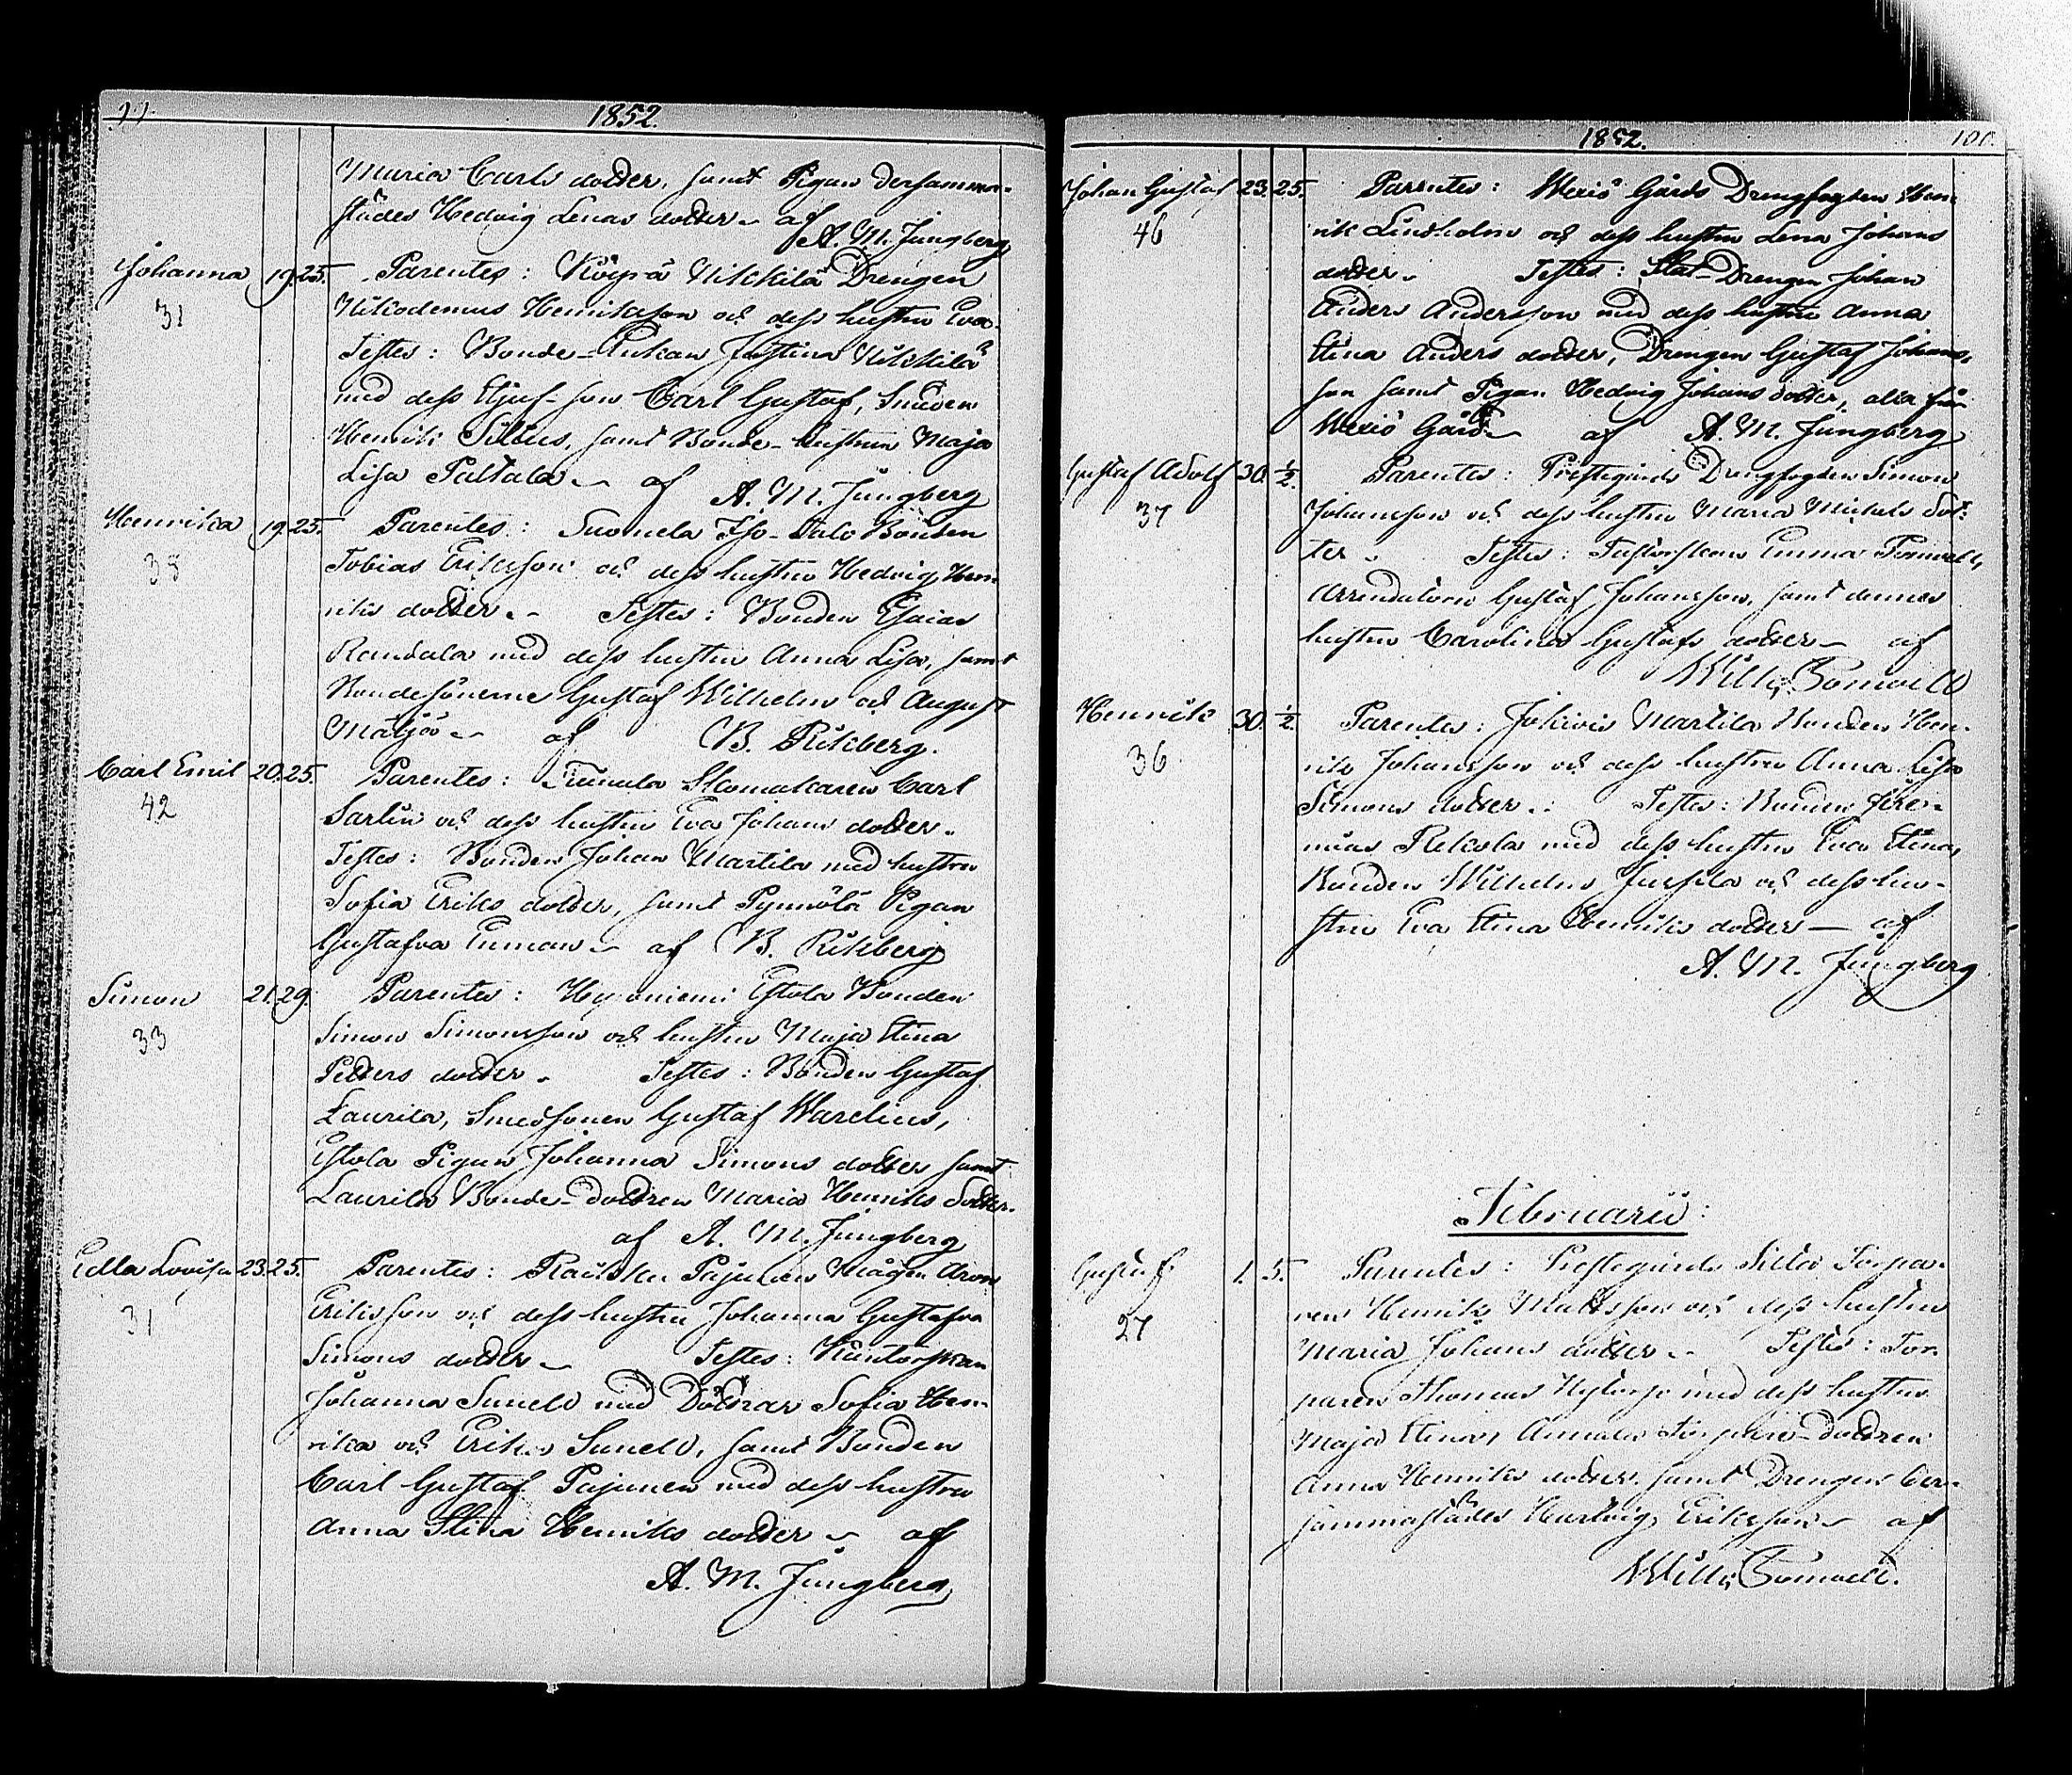 99.
1852.
Maria Carls dotter, samt Pigan dersamma-
städes Hedvig Lenas dotter – af
A. M. Jungberg
Johanna 19. 25. Parentes: Köyrä Nikkilä Drengen
31 Nikodemus Henriksson och dess hustru Eva.
Testes: Bonde-Enkan Justina Nikkilä
med dess Styf-son Carl Gustaf, Smeden
Henrik Silius, samt Bonde-hustrun Maja
Lisa Paltala – af A. M. Jungberg
Henrika 19. 25. Parentes: Suomela Iso-Talo Bonden
35 Tobias Eriksson och dess hustru Hedvig Hen-
riks dotter. – Testes: Bonden Esaias
Randala med dess hustru Anna Lisa, samt
Bondesönerne Gustaf Wilhelm och August
Mäljä – af B. Rikberg.
Carl Emil 20. 25. Parentes: Skomakaren Carl
42 Sarlin och dess hustru Eva Johans dotter.
Testes: Bonden Johan Martila med hustru
Sofia Eriks dotter, samt Pynnölä Pigan
Gustafva – af B. Rikberg
Simon 21. 29. Parentes: Hyoniemi Estola Bonden
33 Simon Simonsson och hustru Maja Stina
Petters dotter – Testes: Bonden Gustaf
Laurila, Smedsonen Gustaf Warelius,
Estola Pigan Johanna Simons dotter samt
Laurila Bonde-dottren Maria Henriks dotter.
af A. M. Jungberg
Edla Lovisa 23. 25. Parentes: Pajunen Mågen Aron
31 Eriksson och dess hustru Johanna Gustafva
Simons dotter – Testes: Kantorskan
Johanna Sunell med Döttrar Sofia Hen-
rika och Erika Sunell, samt Bonden
Carl Gustaf Pajunen med dess hustru
Anna Stina Henriks dotter – af
A. M. Jungberg
1852.
100.
Johan Gustaf 23. 25. Parentes: Wexiö Gårds Drengfogden Hen-
46 rik Lindholm och dess hustru Lena Johans
dotter – Testes: Stat-Drengen Johan
Anders Andersson med dess hustru Anna
Stina Anders dotter, Drengen Gustaf Johans-
son samt Pigan Hedvig Johans dotter, alla från
Wexiö Gård – af A. M. Jungberg
Gustaf Adolf 30. ½. Parentes: Prestegårds Drengfogden Simon
37 Johansson och dess hustru Maria Michels dot-
ter – Testes: Pastorskan Emma Tomvell,
Arrendatorn Gustaf Johansson, samt dennes
hustru Carolina Gustafs dotter – af
Wilh. Tomvell
Henrik 30. ½. Parentes: Jokivis Martila Bonden Hen-
36 rik Johansson och dess hustru Anna Lisa
Simons dotter – Testes: Bonden Jere-
mias Rekola med dess hustru Eva Stina,
Bonden Wilhelm Jussila och dess hu-
stru Eva Stina Henriks dotter – af
A. M. Jungberg
Februarii:
Gustaf 1. 5. Parentes: Prestegårds Torpa-
27 ren Henrik Mattsson och dess hustru
Maria Johans dotter – Testes: Tor-
paren Thomas med dess hustru
Maja Stina, Annala dottren
Anna Henriks dotter, samt Drengen der-
sammastädes Hartvig Eriksson – af
Wilh. Tomvell.